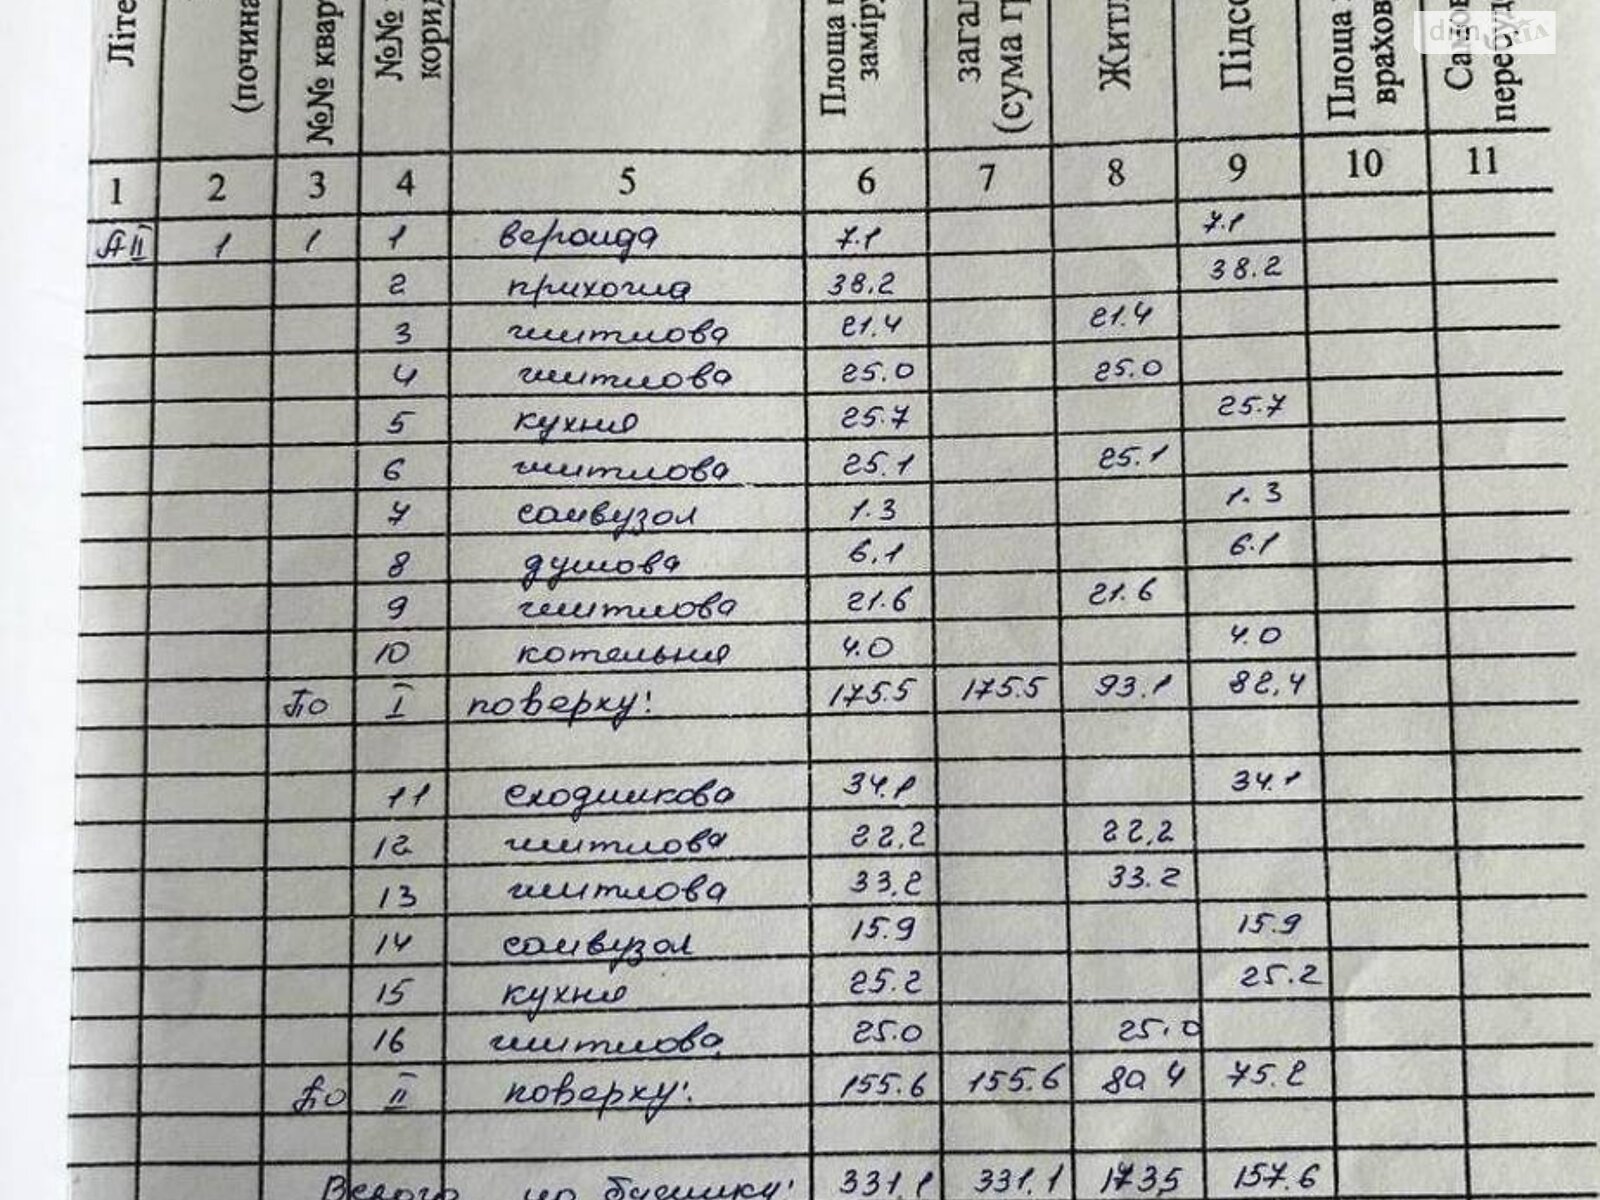 Літе
(почина
№№ кварт
№№
корид
Площа
заміру
загал
(сума гр
Житл
Підсо
Площа
врахов
Самов
перебуд
dim.RIA
1 2 3 4 5 6 7 8 9 10 11
АІІ 1 1 1 веранда 7.1 7.1
2 прихожа 38.2 38.2
3 житлова 21.4 21.4
4 житлова 25.0 25.0
5 кухня 25.7 25.7
6 житлова 25.1 25.1
7 санвузол 1.3 1.3
8 душова 6.1 6.1
9 житлова 21.6 21.6
10 котельня 4.0 4.0
По І поверху: 175.5 175.5 93.1 82.4
11 сходинкова 34.1 34.1
12 житлова 22.2 22.2
13 житлова 33.2 33.2
14 санвузол 15.9 15.9
15 кухня 25.2 25.2
16 житлова 25.0 25.0
По ІІ поверху: 155.6 155.6 80.4 75.2
Всього по будинку: 331.1 331.1 173.5 157.6